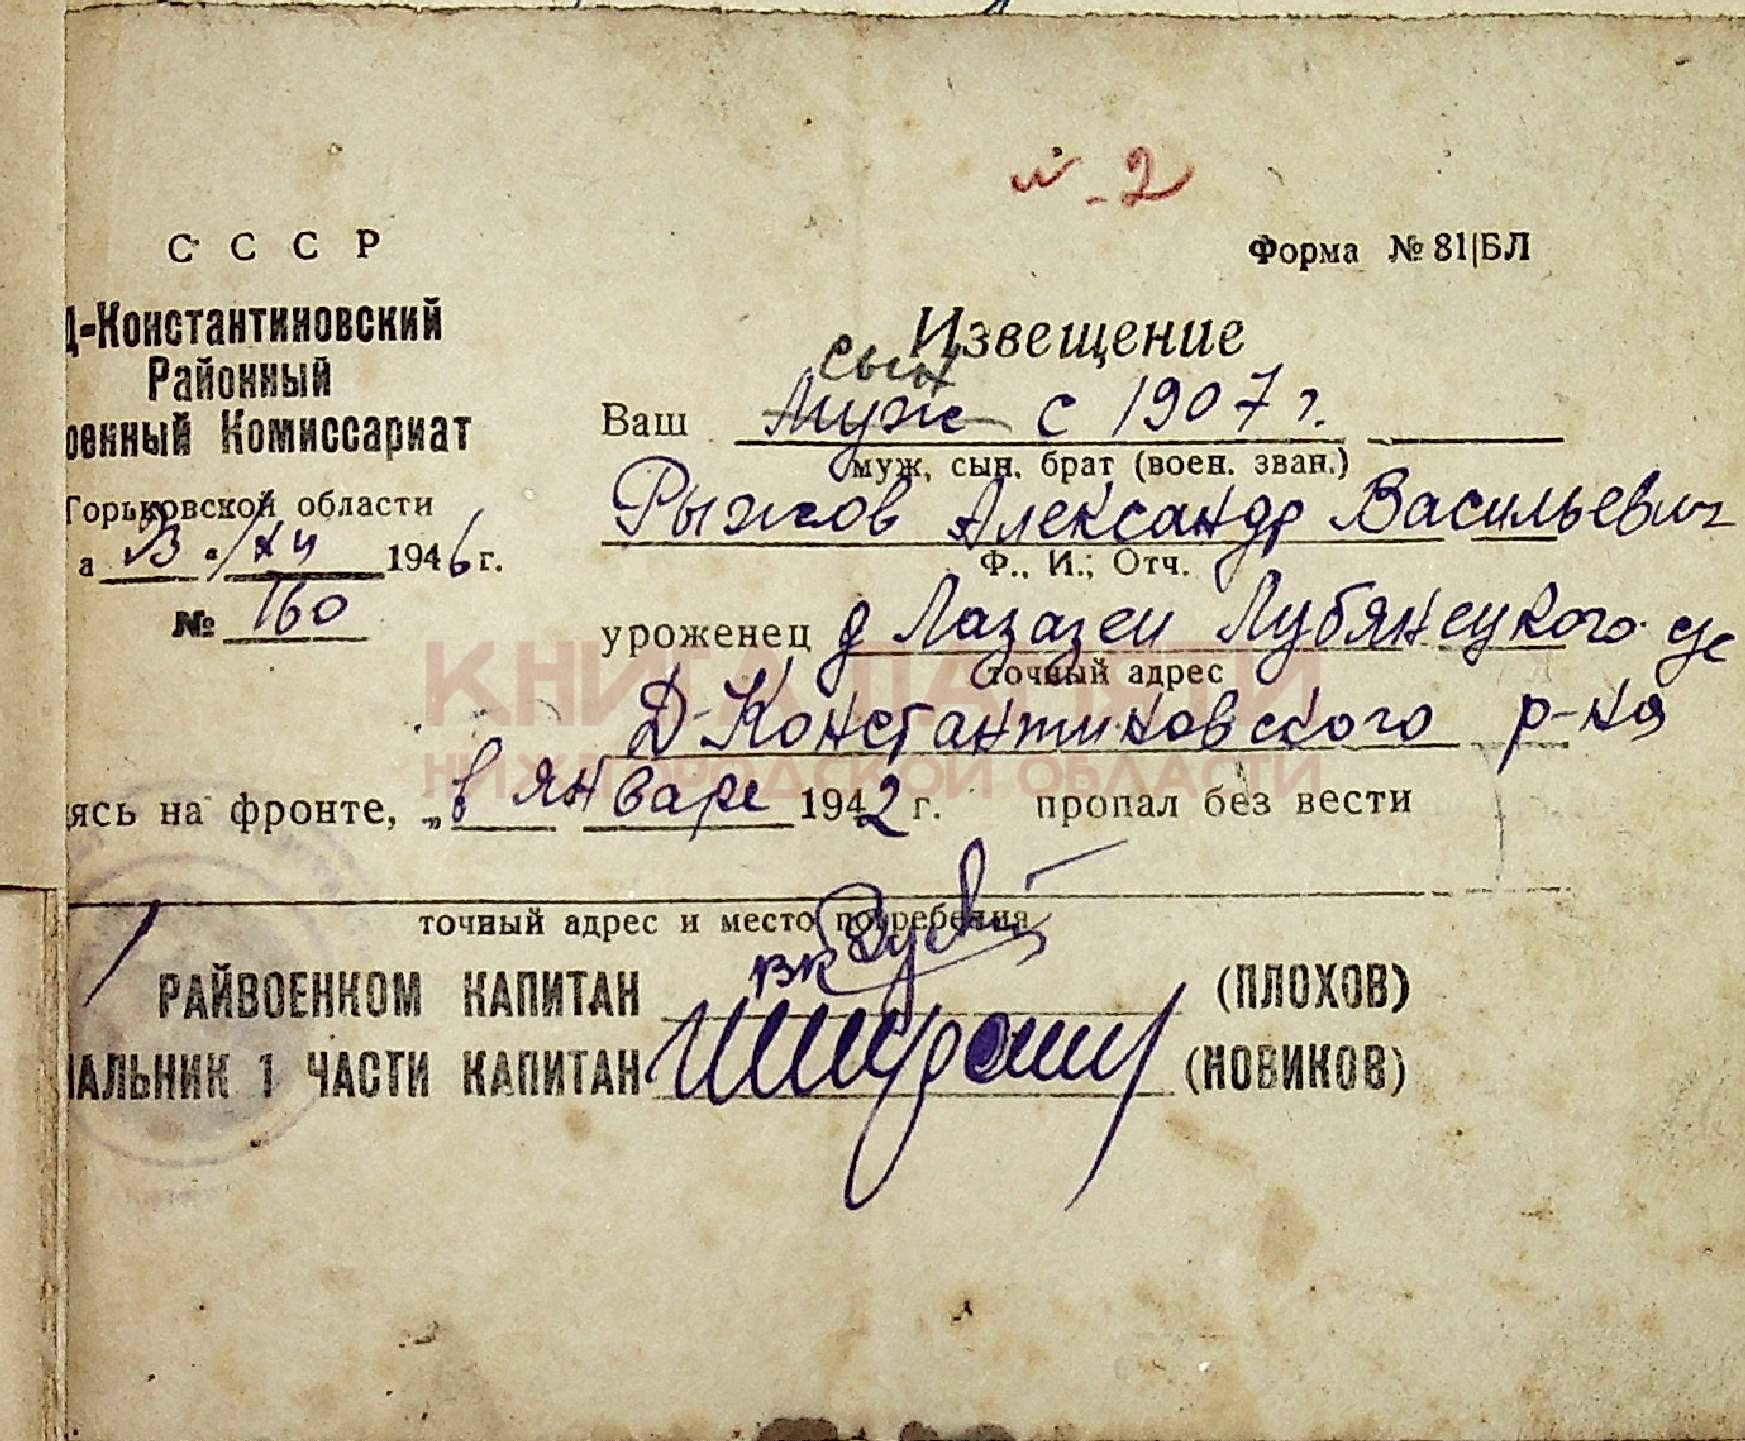 и-2
С С С Р
Форма № 81|БЛ
Д-Константиновский
Районный
оенный Комиссариат
Горьковской области
а 1946 г.
№ 160
Извещение
сын
Ваш муж с 1907 г.
муж, сын, брат (воен. зван.)
Рыжов Александр Васильевич
Ф., И.; Отч.
уроженец д Лазазеи Лубянецкого с/с
точный адрес
Д-Константиновского р-на
КНИГА ПАМЯТИ
НИЖЕГОРОДСКОЙ ОБЛАСТИ
ясь на фронте, „в январе 1942 г. пропал без вести
точный адрес и место погребения
РАЙВОЕНКОМ КАПИТАН (ПЛОХОВ)
АЛЬНИК 1 ЧАСТИ КАПИТАН (НОВИКОВ)